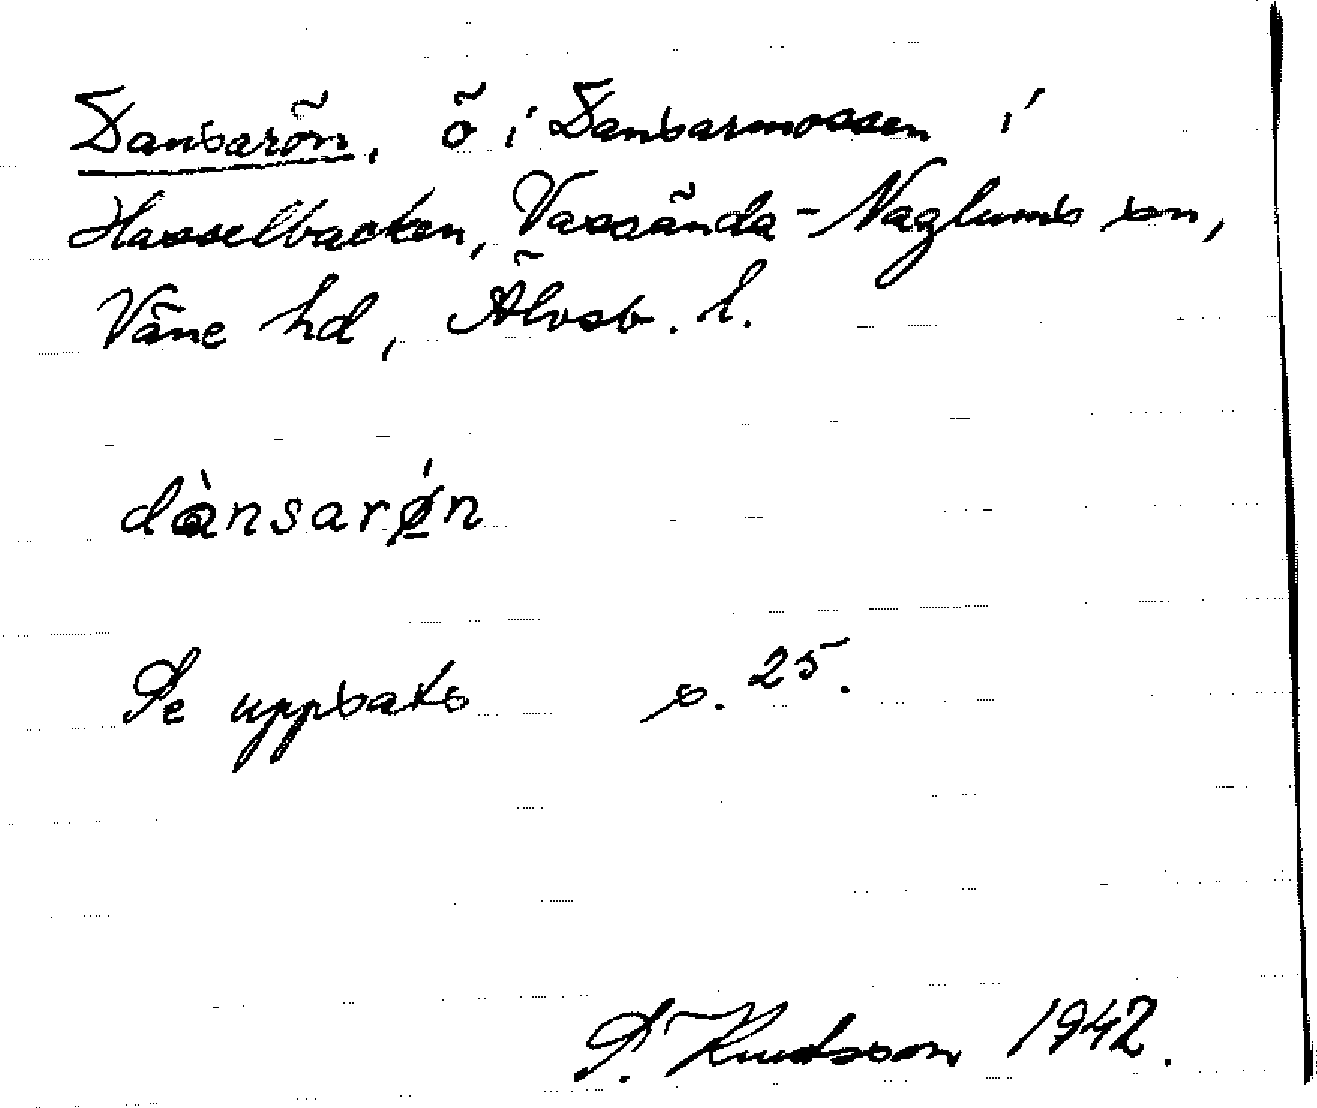 Dansarön, ö i Dansarmossen i
Hasselbacken, Vassända-Naglums sn,
Väne hd, Älvsb. l.
dànsarǿn
Se uppsats s. 25.
P. Knudsson 1942.